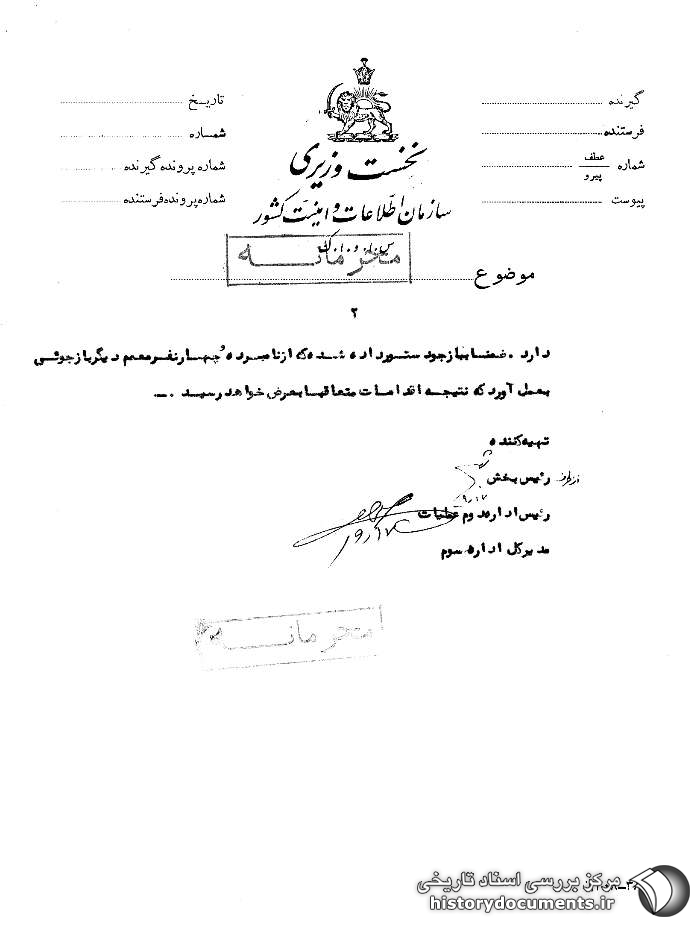 گیرنده
فرستنده
شماره عطف پیرو
پیوست
تاریخ
شماره
شماره پرونده گیرنده
شماره پرونده فرستنده
نخست وزیری
سازمان اطلاعات و امنیت کشور
س.ا.و.ا.ک
محرمانه
موضوع
۲
دارد . ضمناً بازجو دستور داده شده که از نامبرده و چهار نفر معمم دیگر بازجوئی
بعمل آورد که نتیجه اقدامات متعاقباً بعرض خواهد رسید . ــ
تهیه کننده
رئیس بخش
از طرف
۹/۱۷
رئیس اداره دوم عملیات
۹/۱۷
مدیر کل اداره سوم
محرمانه
مرکز بررسی اسناد تاریخی
historydocuments.ir